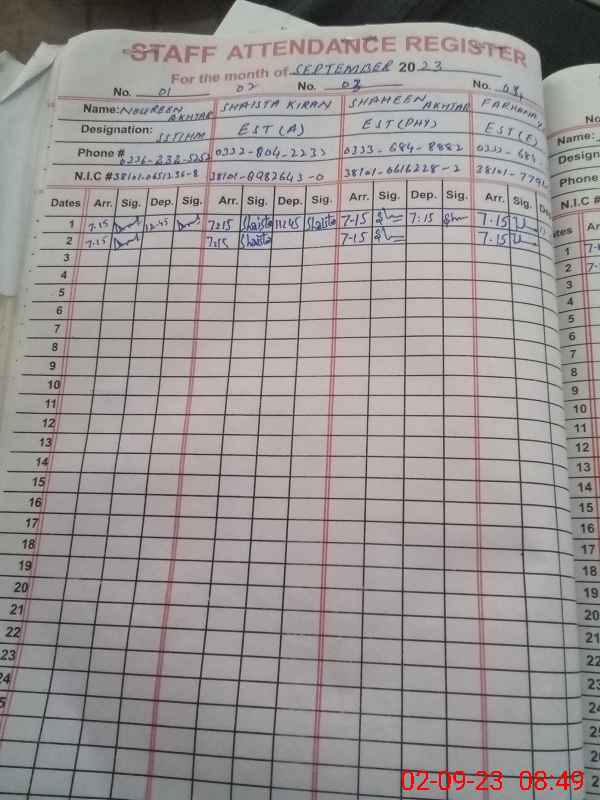 STAFF ATTENDANCE REGISTER
For the month of SEPTEMBER 2023
No. 01 02 No. 03 No. 04
Name: NOUREEN AKHTAR SHAISTA KIRAN SHAHEEN AKHTAR FARHANA
Designation: SSTIHM EST(A) EST(PHY) EST(F)
Phone # 0332-804-2232 0333-684-8882 0333-684
N.I.C # 38101-0982643-0 38101-0616228-2 38101-779
Dates Arr. Sig. Dep. Sig. Arr. Sig. Dep. Sig. Arr. Sig. Dep. Sig. Arr. Sig. De
1 7.15 12.45 7:15 Shaista 12:45 Shaista 7-15 7:15 7.15
2 7.15 7:15 Shaista 7-15 7.15
3
4
5
6
7
8
9
10
11
12
13
14
15
16
17
18
19
20
21
22
23
24
5
Name:
Design
Phone
N.I.C #
ates Ar
1 7-1
2 7-1
3
4
5
6
7
8
9
10
11
12
13
14
15
16
17
18
19
20
21
22
23
24
02-09-23 08:49